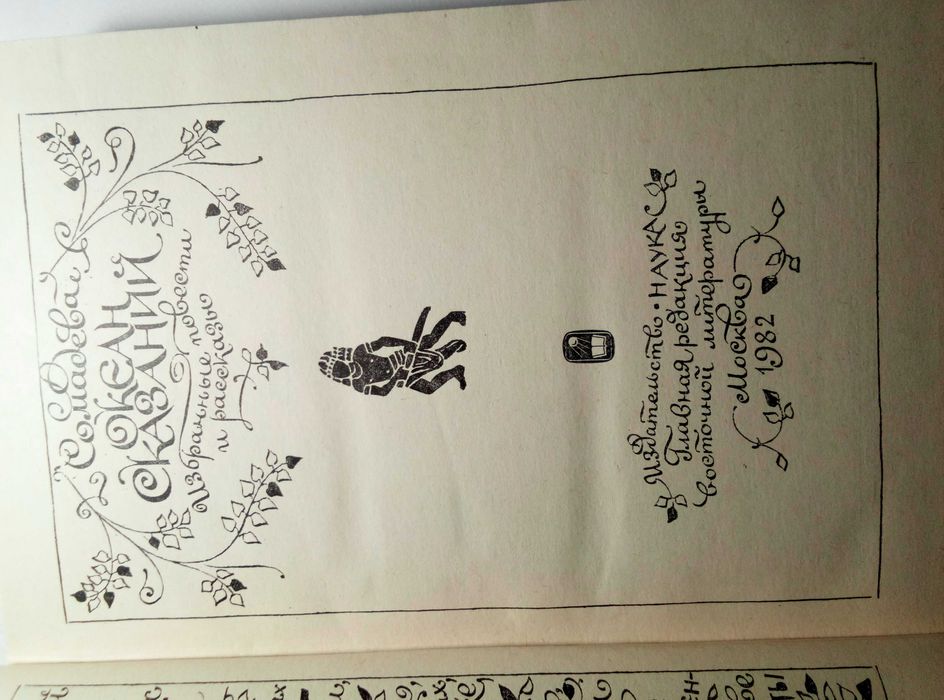 Сомадева
ОКЕАН
СКАЗАНИЙ
Избранные повести
и рассказы
Издательство • НАУКА
Главная редакция
восточной литературы
Москва
1982